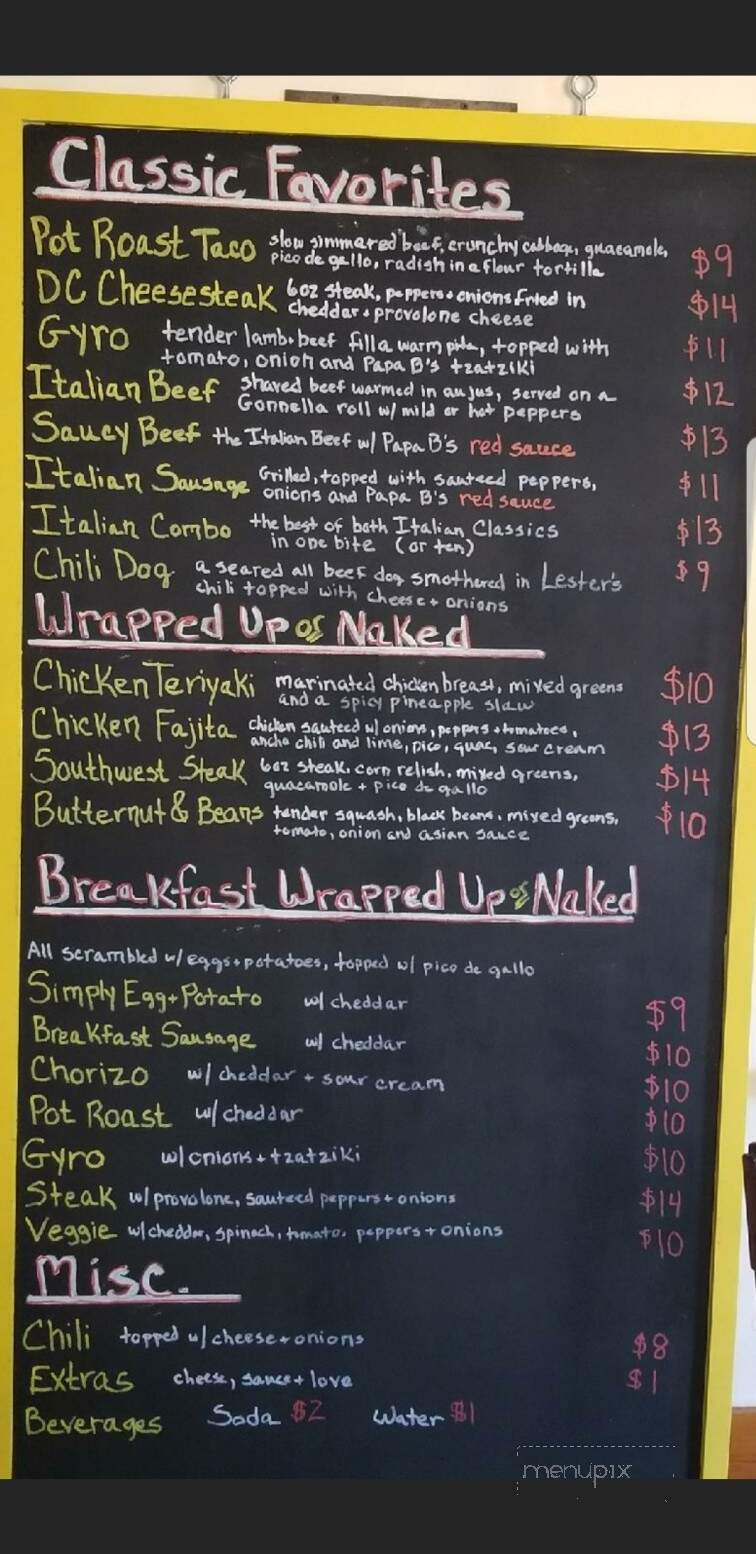 Classic Favorites
Pot Roast Taco slow simmared beef, crunchy cabbage, guacamole, $9
pico de gallo, radish in a flour tortilla
DC Cheesesteak 6oz steak, peppers + onions fried in $14
cheddar + provolone cheese
Gyro tender lamb + beef fill a warm pita, topped with $11
tomato, onion and Papa B's tzatziki
Italian Beef shaved beef warmed in au jus, served on a $12
Gonnella roll w/ mild or hot peppers
Saucy Beef the Italian Beef w/ Papa B's red sauce $13
Italian Sausage Grilled, topped with sauteed peppers, $11
onions and Papa B's red sauce
Italian Combo the best of both Italian Classics $13
in one bite (or ten)
Chili Dog a seared all beef dog smothered in Lester's $9
chili topped with cheese + onions
Wrapped Up or Naked
Chicken Teriyaki marinated chicken breast, mixed greens $10
and a spicy pineapple slaw
Chicken Fajita chicken sauteed w/ onions, peppers + tomatoes, $13
ancho chili and lime, pico, guac, sour cream
Southwest Steak 6oz steak, corn relish, mixed greens, $14
guacamole + pico de gallo
Butternut & Beans tender squash, black beans, mixed greens, $10
tomato, onion and asian sauce
Breakfast Wrapped Up or Naked
All scrambled w/ eggs + potatoes, topped w/ pico de gallo
Simply Egg + Potato w/ cheddar $9
Breakfast Sausage w/ cheddar $10
Chorizo w/ cheddar + sour cream $10
Pot Roast w/ cheddar $10
Gyro w/ onions + tzatziki $10
Steak w/ provolone, sauteed peppers + onions $14
Veggie w/ cheddar, spinach, tomato, peppers + onions $10
Misc.
Chili topped w/ cheese + onions $8
Extras cheese, sauce + love $1
Beverages Soda $2 Water $1
menupix